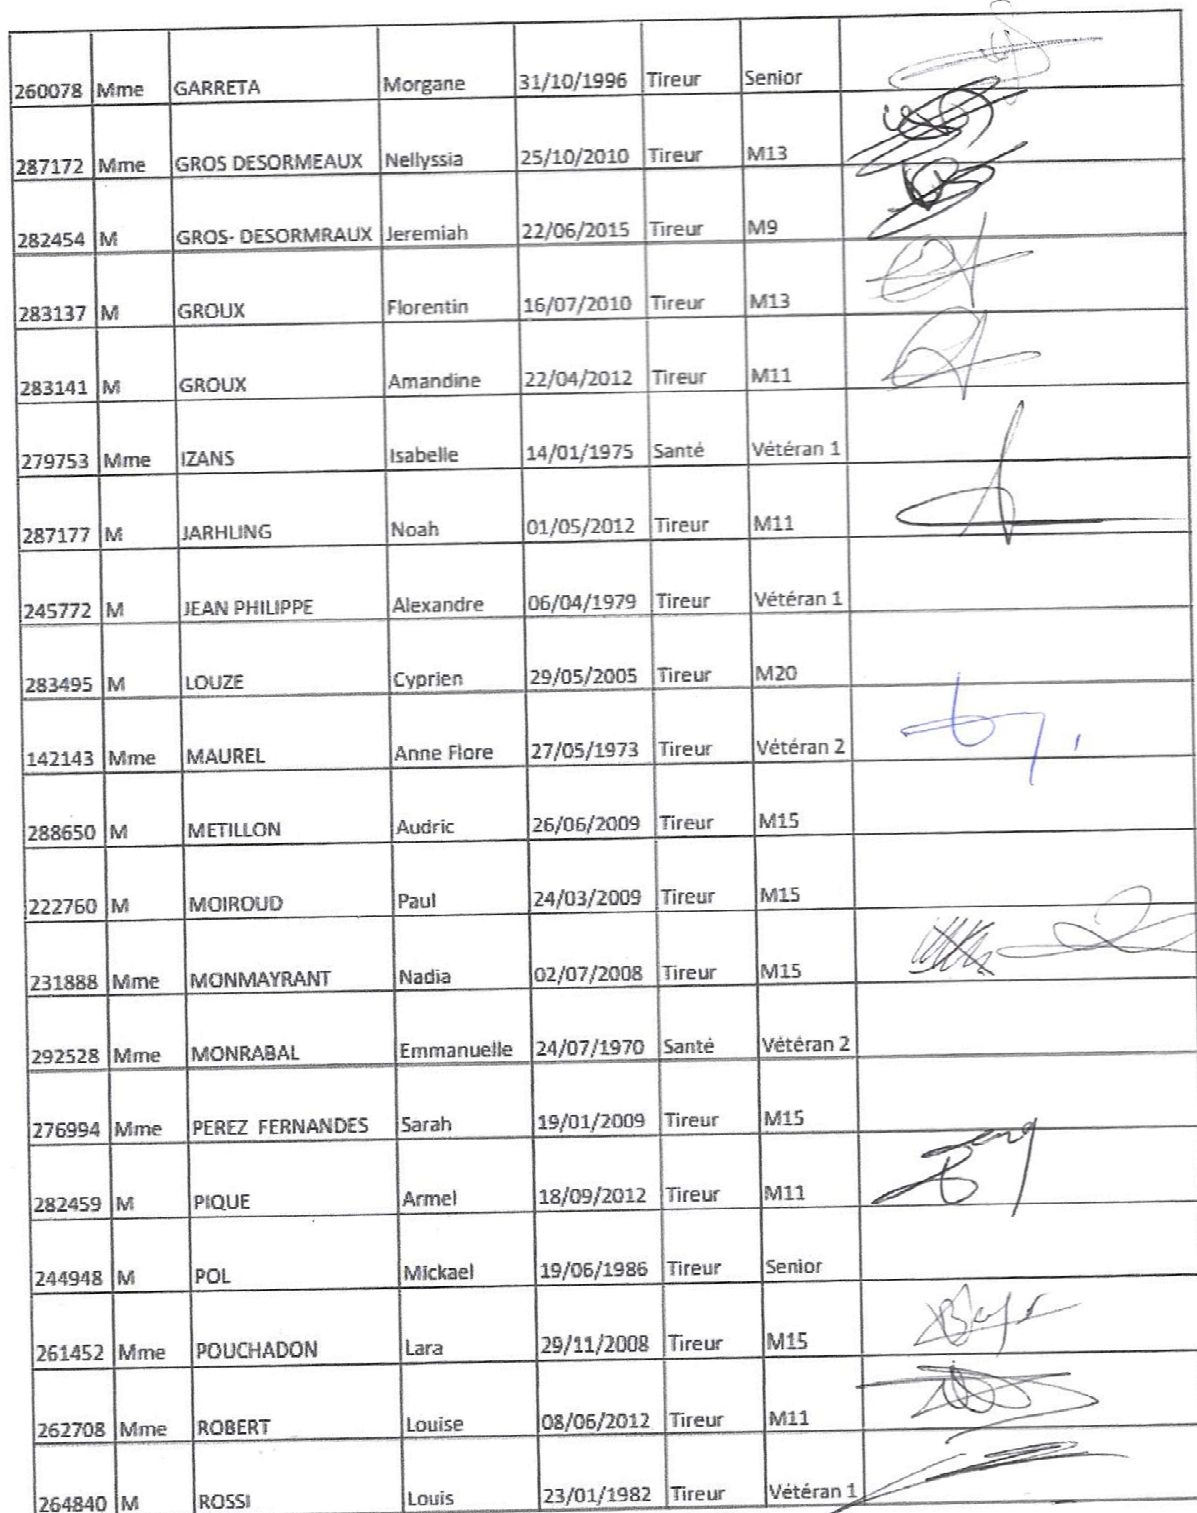 260078 Mme GARRETA Morgane 31/10/1996 Tireur Senior
287172 Mme GROS DESORMEAUX Nellyssia 25/10/2010 Tireur M13
282454 M GROS- DESORMRAUX Jeremiah 22/06/2015 Tireur M9
283137 M GROUX Florentin 16/07/2010 Tireur M13
283141 M GROUX Amandine 22/04/2012 Tireur M11
279753 Mme IZANS Isabelle 14/01/1975 Santé Vétéran 1
287177 M JARHLING Noah 01/05/2012 Tireur M11
245772 M JEAN PHILIPPE Alexandre 06/04/1979 Tireur Vétéran 1
283495 M LOUZE Cyprien 29/05/2005 Tireur M20
142143 Mme MAUREL Anne Flore 27/05/1973 Tireur Vétéran 2
288650 M METILLON Audric 26/06/2009 Tireur M15
222760 M MOIROUD Paul 24/03/2009 Tireur M15
231888 Mme MONMAYRANT Nadia 02/07/2008 Tireur M15
292528 Mme MONRABAL Emmanuelle 24/07/1970 Santé Vétéran 2
276994 Mme PEREZ FERNANDES Sarah 19/01/2009 Tireur M15
282459 M PIQUE Armel 18/09/2012 Tireur M11
244948 M POL Mickael 19/06/1986 Tireur Senior
261452 Mme POUCHADON Lara 29/11/2008 Tireur M15
262708 Mme ROBERT Louise 08/06/2012 Tireur M11
264840 M ROSSI Louis 23/01/1982 Tireur Vétéran 1